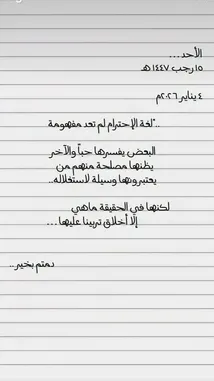 الأحد...
١٥ رجب ١٤٤٧ هـ
٤ يناير ٢٠٢٦م
"لغة الإحترام لم تعد مفهومة..
البعض يفسرها حباً والآخر
يظنها مصلحة منهم من
يعتبرونها وسيلة لاستغلاله..
لكنها في الحقيقة ماهي
إلا أخلاق تربينا عليها...
دمتم بخير..